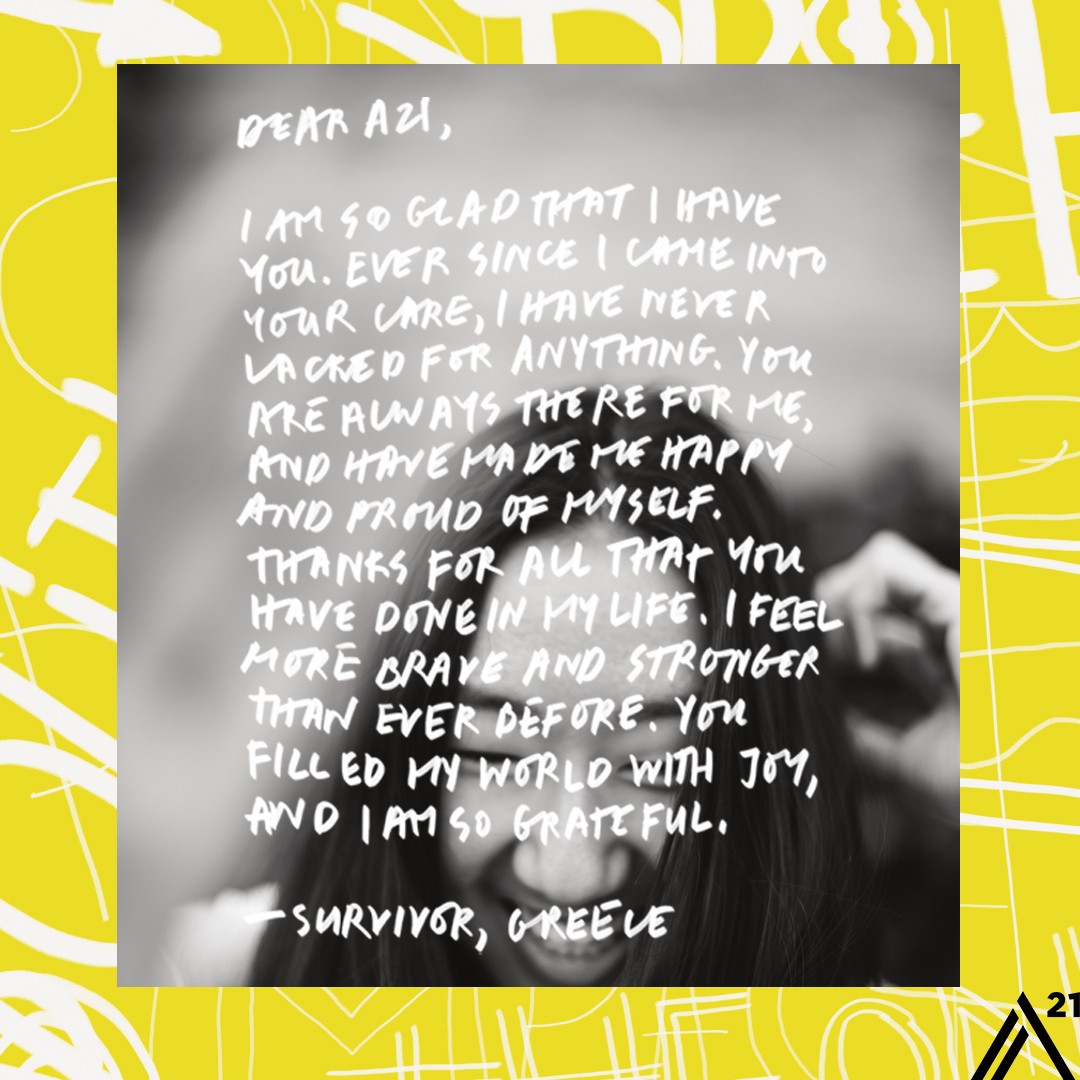 DEAR A21,
I AM SO GLAD THAT I HAVE
YOU. EVER SINCE I CAME INTO
YOUR CARE, I HAVE NEVER
LACKED FOR ANYTHING. YOU
ARE ALWAYS THERE FOR ME,
AND HAVE MADE ME HAPPY
AND PROUD OF MYSELF.
THANKS FOR ALL THAT YOU
HAVE DONE IN MY LIFE. I FEEL
MORE BRAVE AND STRONGER
THAN EVER BEFORE. YOU
FILLED MY WORLD WITH JOY,
AND I AM SO GRATEFUL.
—SURVIVOR, GREECE
21